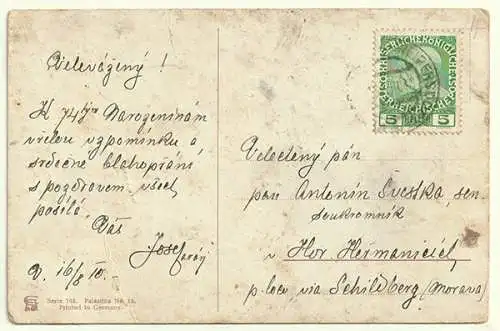 Velevážený !
K 74tým Narozeninám
vřelou vzpomínku a
srdečné blahopřání
s pozdravem všech
posílá
Váš
Josef
16/8 10.
Serie 165. Palästina No. 12.
Printed in Germany.
KAISERLICHEKÖNIGLICHE
ÖSTERREICHISCHE
5 5
Velectený pán
pan Antonín Švestka, sen
soukromník
v Hor. Heřmanicích,
p. loco via Schildberg (Morava)